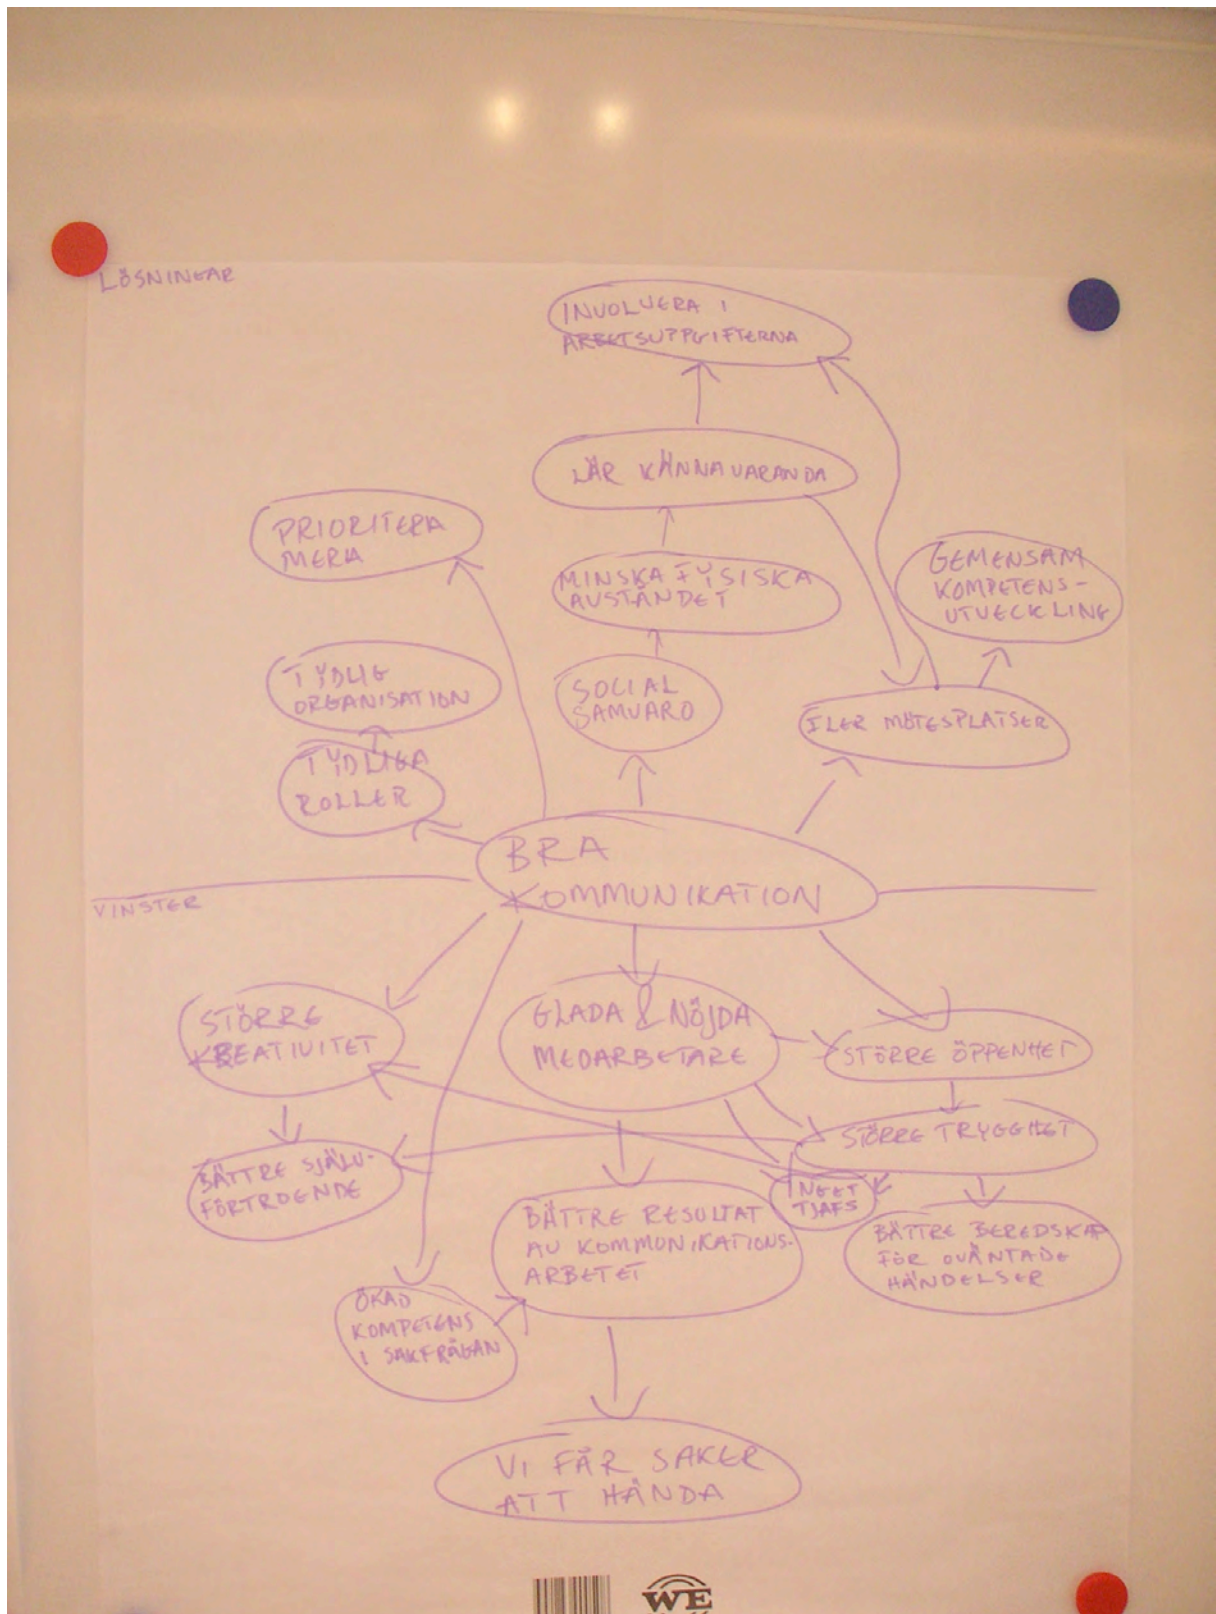 LÖSNINGAR
INVOLVERA I
ARBETSUPPGIFTERNA
LÄR KÄNNA VARANDA
PRIORITERA
MERA
MINSKA FYSISKA
AVSTÅNDET
GEMENSAM
KOMPETENS-
UTVECKLING
TYDLIG
ORGANISATION
SOCIAL
SAMVARO
FLER MÖTESPLATSER
TYDLIGA
ROLLER
BRA
KOMMUNIKATION
VINSTER
STÖRRE
KREATIVITET
GLADA & NÖJDA
MEDARBETARE
STÖRRE ÖPPENHET
STÖRRE TRYGGHET
BÄTTRE SJÄLV-
FÖRTROENDE
INGET
TJAFS
BÄTTRE RESULTAT
AV KOMMUNIKATIONS-
ARBETET
BÄTTRE BEREDSKAP
FÖR OVÄNTADE
HÄNDELSER
ÖKAD
KOMPETENS
I SAKFRÅGAN
VI FÅR SAKER
ATT HÄNDA
WE